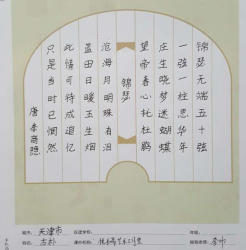 锦瑟无端五十弦
一弦一柱思华年
庄生晓梦迷蝴蝶
望帝春心托杜鹃
锦瑟
沧海月明珠有泪
蓝田日暖玉生烟
此情可待成追忆
只是当时已惘然
唐 李商隐
天津市